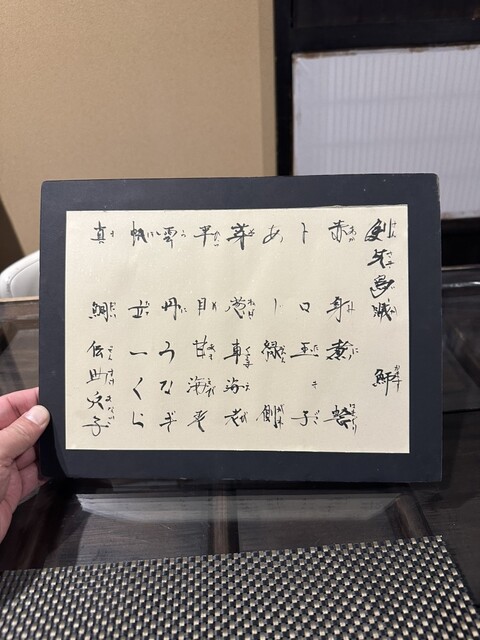 剣先烏賊
赤身 煮蛤
トロ 玉子
あじ 縁側
芽葱 車海老
平目 甘海老
雲丹 うなぎ
帆立 いくら
真鯛 伝助穴子